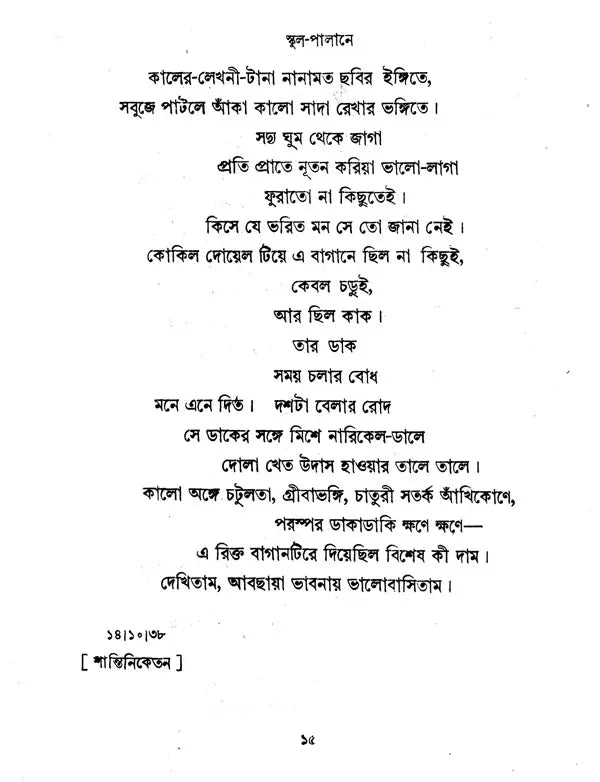 স্কুল-পালানে
কালের-লেখনী-টানা নানামত ছবির ইঙ্গিতে,
সবুজে পাটলে আঁকা কালো সাদা রেখার ভঙ্গিতে।
সদ্য ঘুম থেকে জাগা
প্রতি প্রাতে নূতন করিয়া ভালো-লাগা
ফুরাতো না কিছুতেই।
কিসে যে ভরিত মন সে তো জানা নেই।
কোকিল দোয়েল টিয়ে এ বাগানে ছিল না কিছুই,
কেবল চড়ুই,
আর ছিল কাক।
তার ডাক
সময় চলার বোধ
মনে এনে দিত। দশটা বেলার রোদ
সে ডাকের সঙ্গে মিশে নারিকেল-ডালে
দোলা খেত উদাস হাওয়ার তালে তালে।
কালো অঙ্গে চটুলতা, গ্রীবাভঙ্গি, চাতুরী সতর্ক আঁখিকোণে,
পরস্পর ডাকাডাকি ক্ষণে ক্ষণে—
এ রিক্ত বাগানটিরে দিয়েছিল বিশেষ কী দাম।
দেখিতাম, আবছায়া ভাবনায় ভালোবাসিতাম।
১৪|১০|৩৮
[ শান্তিনিকেতন ]
১৫